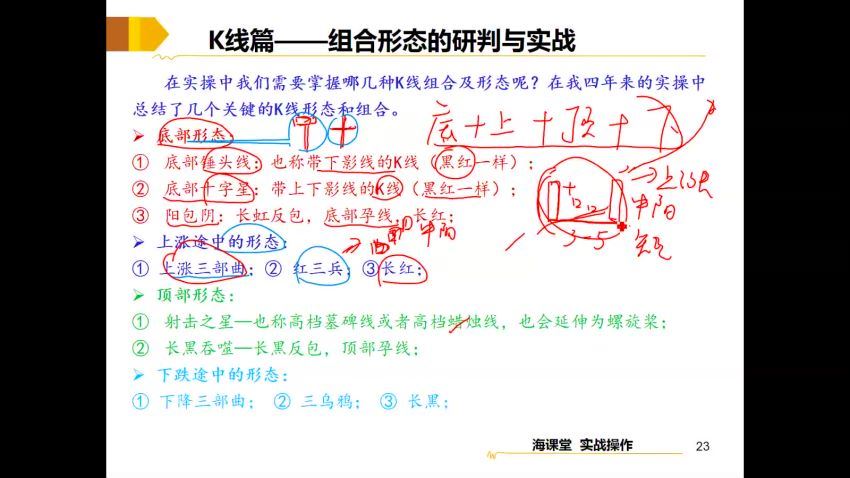 K线篇——组合形态的研判与实战
在实操中我们需要掌握哪几种K线组合及形态呢？在我四年来的实操中
总结了几个关键的K线形态和组合。
底+上+顶+下
➢ 底部形态：
① 底部锤头线：也称带下影线的K线（黑红一样）；
② 底部十字星：带上下影线的K线（黑红一样）；
③ 阳包阴：长虹反包，底部孕线，长红；
中阳
3-5
中阳
➢ 上涨途中的形态：
① 上涨三部曲；② 红三兵；③长红；
➢ 顶部形态：
① 射击之星—也称高档墓碑线或者高档蜡烛线，也会延伸为螺旋桨；
② 长黑吞噬—长黑反包，顶部孕线；
➢ 下跌途中的形态：
① 下降三部曲； ② 三乌鸦； ③ 长黑；
海课堂 实战操作
23